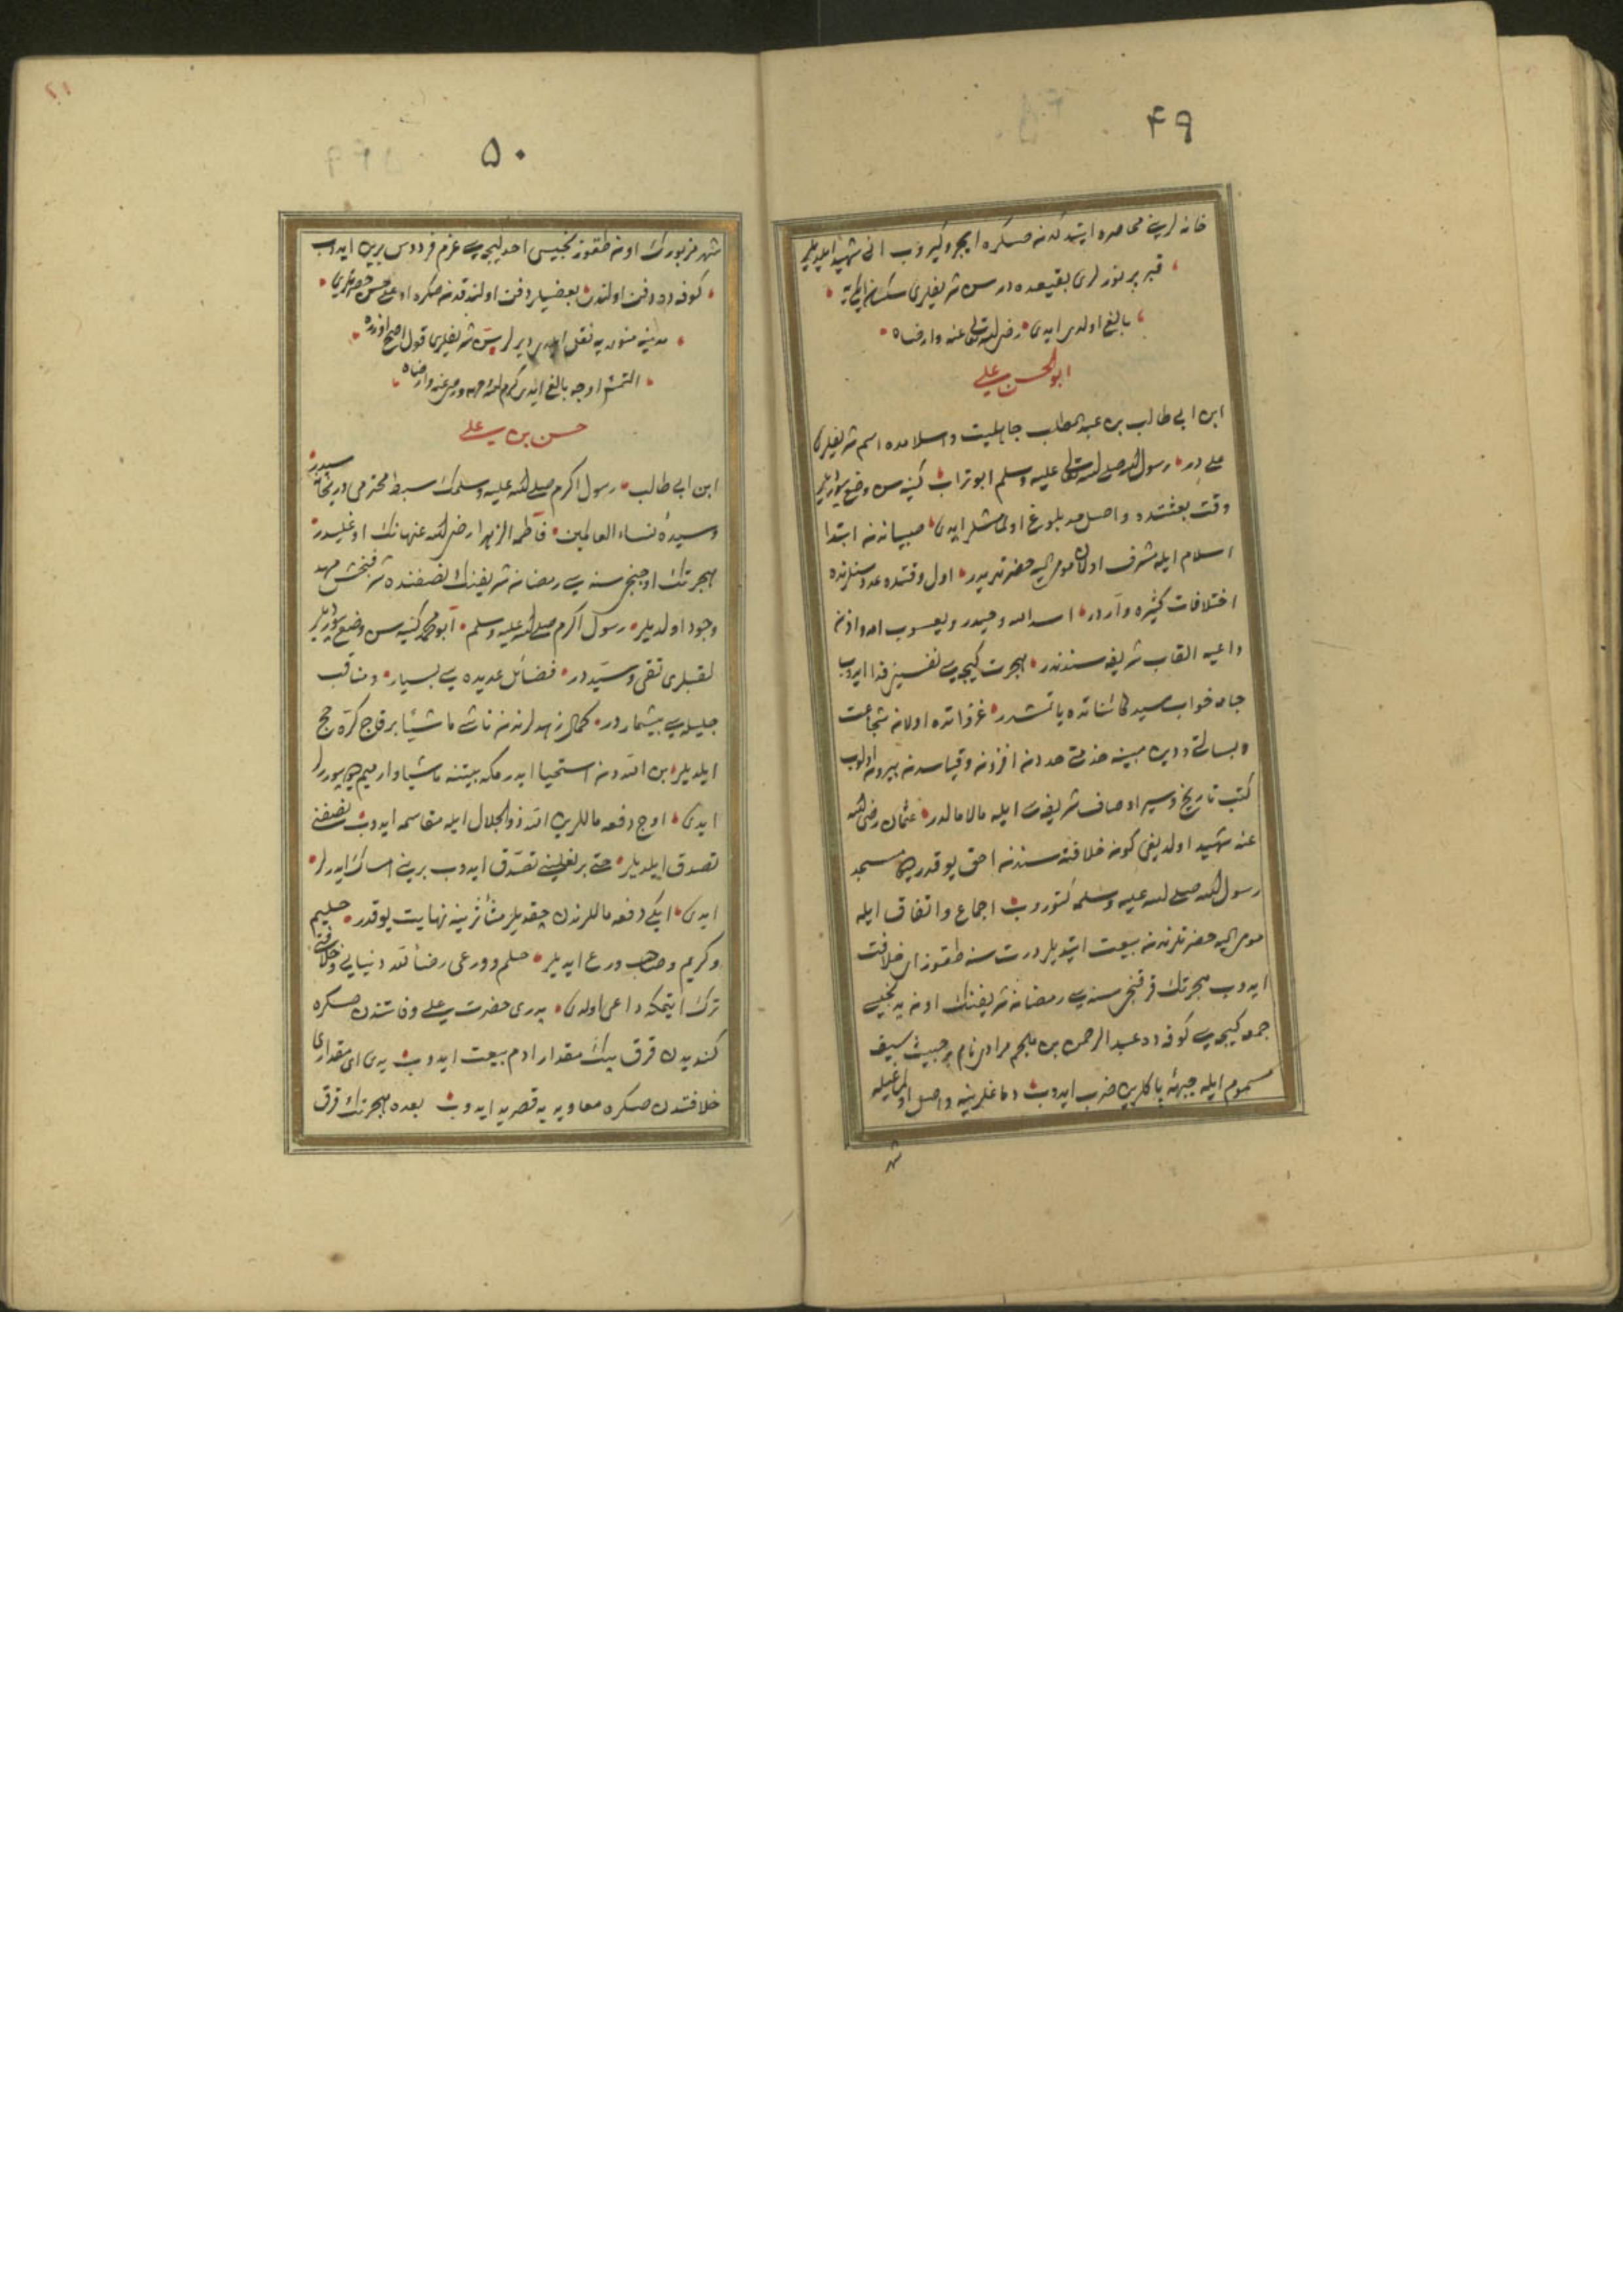 ۴۹
خانه لرینی محاصره ایتدکدنصکره ایچرو کیروب انی شهید ایلدیلر
قبر پر نورلری بقیعده در سن شریفلری سکسان ایکی یه
بالغ اولدی ایدی رضی الله تعالی عنه وارضاه
ابو الحسن علی
ابن ابی طالب بن عبد المطلب جاهلیت و اسلامده اسم شریفلری
علی در رسول الله صلی الله تعالی علیه وسلم ابو تراب کنیه سن وضع بیوردیلر
وقت بعثتده واصل حد بلوغ اولمامشلر ایدی صبیاندن ابتدا
اسلام ایله مشرف اولان مومی الیه حضرتلریدر اول وقتده عدد سنلرنده
اختلافات کثیره واردر اسد الله و حیدر و یعسوب امة و اذن
داعیه القاب شریفه سندندر هجرت کیجه سی نفسین فدا ایدوب
جامه خواب سید کائناتده یاتمشدر غزواتده اولان شجاعت
وبسالتی و دین مبینه خدمتی حددن افزون و قیاسدن بیرون اولوب
کتب تاریخ و سیر اوصاف شریفه سی ایله مالامالدر عثمان رضی الله
عنه شهید اولدیغی کون خلافته سندن احق یوقدر دیو مسجد
رسول الله صلی الله علیه وسلمه کتوروب اجماع و اتفاق ایله
مومی الیه حضرتلرندن بیعت ایتدیلر درت سنه طقوز ای خلافت
ایدوب هجرتک قرقنجی سنه سی رمضان شریفنک اون یدنجی
جمعه کیجه سی کوفه ده عبد الرحمن بن ملجم مرادی نام بر خبیث سیف
مسموم ایله جبهۀ پاکلرین ضرب ایدوب دماغلرینه واصل اولمغیله
شهر
۵۰
شهر مزبورک اون طقوزنجیسی احد لیجه سی عزم فردوس برین ایدوب
کوفه ده دفن اولندی بعضیلر دفن اولندقدنصکره اوغلی حسن حضرتلری
مدینۀ منوره یه نقل ایلدی دیرلر سن شریفلری قول اصح اوزره
التمش اوچه بالغ ایدی کرم الله وجهه ورضی عنه وارضاه
حسن بن علی
ابن ابی طالب رسول اکرم صلی الله علیه وسلمک سبط محترمی و ریحانه سیدر
و سیدۀ نساء العالمین فاطمه الزهرا رضی الله عنهانک اوغلیدر
هجرتک اوچنجی سنه سی رمضان شریفنک نصفنده شرفبخش مهد
وجود اولدیلر رسول اکرم صلی الله علیه وسلم ابو محمد کنیه سن وضع بیوردیلر
لقبلری تقی و سیددر فضائل عدیده سی بسیار و مناقب
جلیله سی بیشماردر کمال زهدلرندن ناشی ماشیًا بر قاچ کره حج
ایلدیلر بن اللهدن استحیا ایدرمکه بیتنه ماشیا وارمیم دیو بیوررلر
ایدی اوچ دفعه ماللرین الله ذو الجلال ایله مقاسمه ایدوب نصفنی
تصدق ایلدیلر حتی بر نعلینی تصدق ایدوب برینی امساک ایدرلر
ایدی ایکی دفعه ماللرندن چقدیلر مآثرینه نهایت یوقدر حلیم
و کریم وصاحب ورع ایدیلر حلم و ورعی رضاء لله دنیایی وخلافتی
ترک ایتمکه داعی اولدی پدری حضرت علی وفاتندن صکره
کندیدن قرق بیک مقدار ادم بیعت ایدوب یدی ای مقداری
خلافتدن صکره معاویه یه قصر ید ایدوب بعده هجرتک قرق